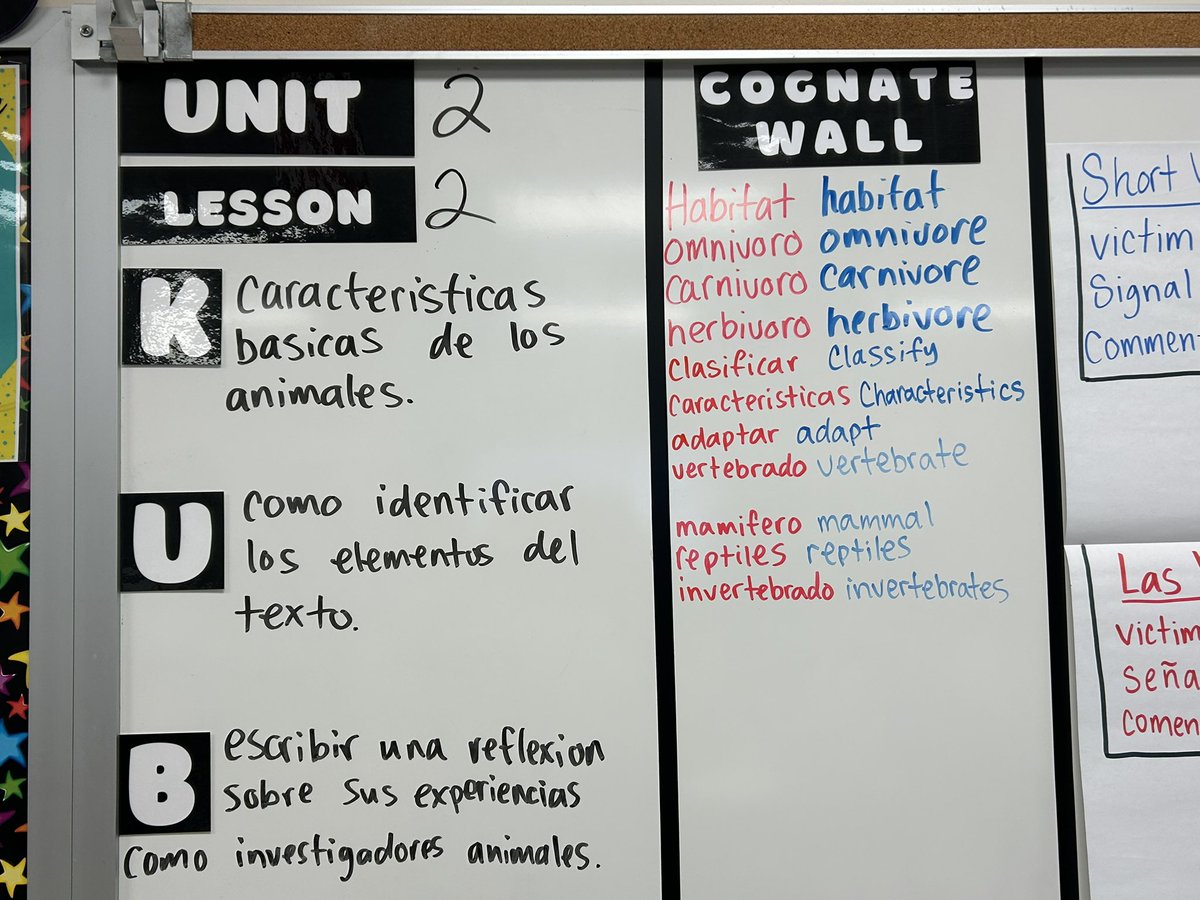 UNIT 2
LESSON 2
K caracteristicas
basicas de los
animales.
U como identificar
los elementos del
texto.
B escribir una reflexion
sobre sus experiencias
como investigadores animales.
COGNATE
WALL
Habitat habitat
omnivoro omnivore
Carnivoro Carnivore
herbivoro herbivore
Clasificar Classify
caracteristicas Characteristics
adaptar adapt
vertebrado vertebrate
mamifero mammal
reptiles reptiles
invertebrado invertebrates
Short
victim
Signal
Commen
Las
victim
seña
comen